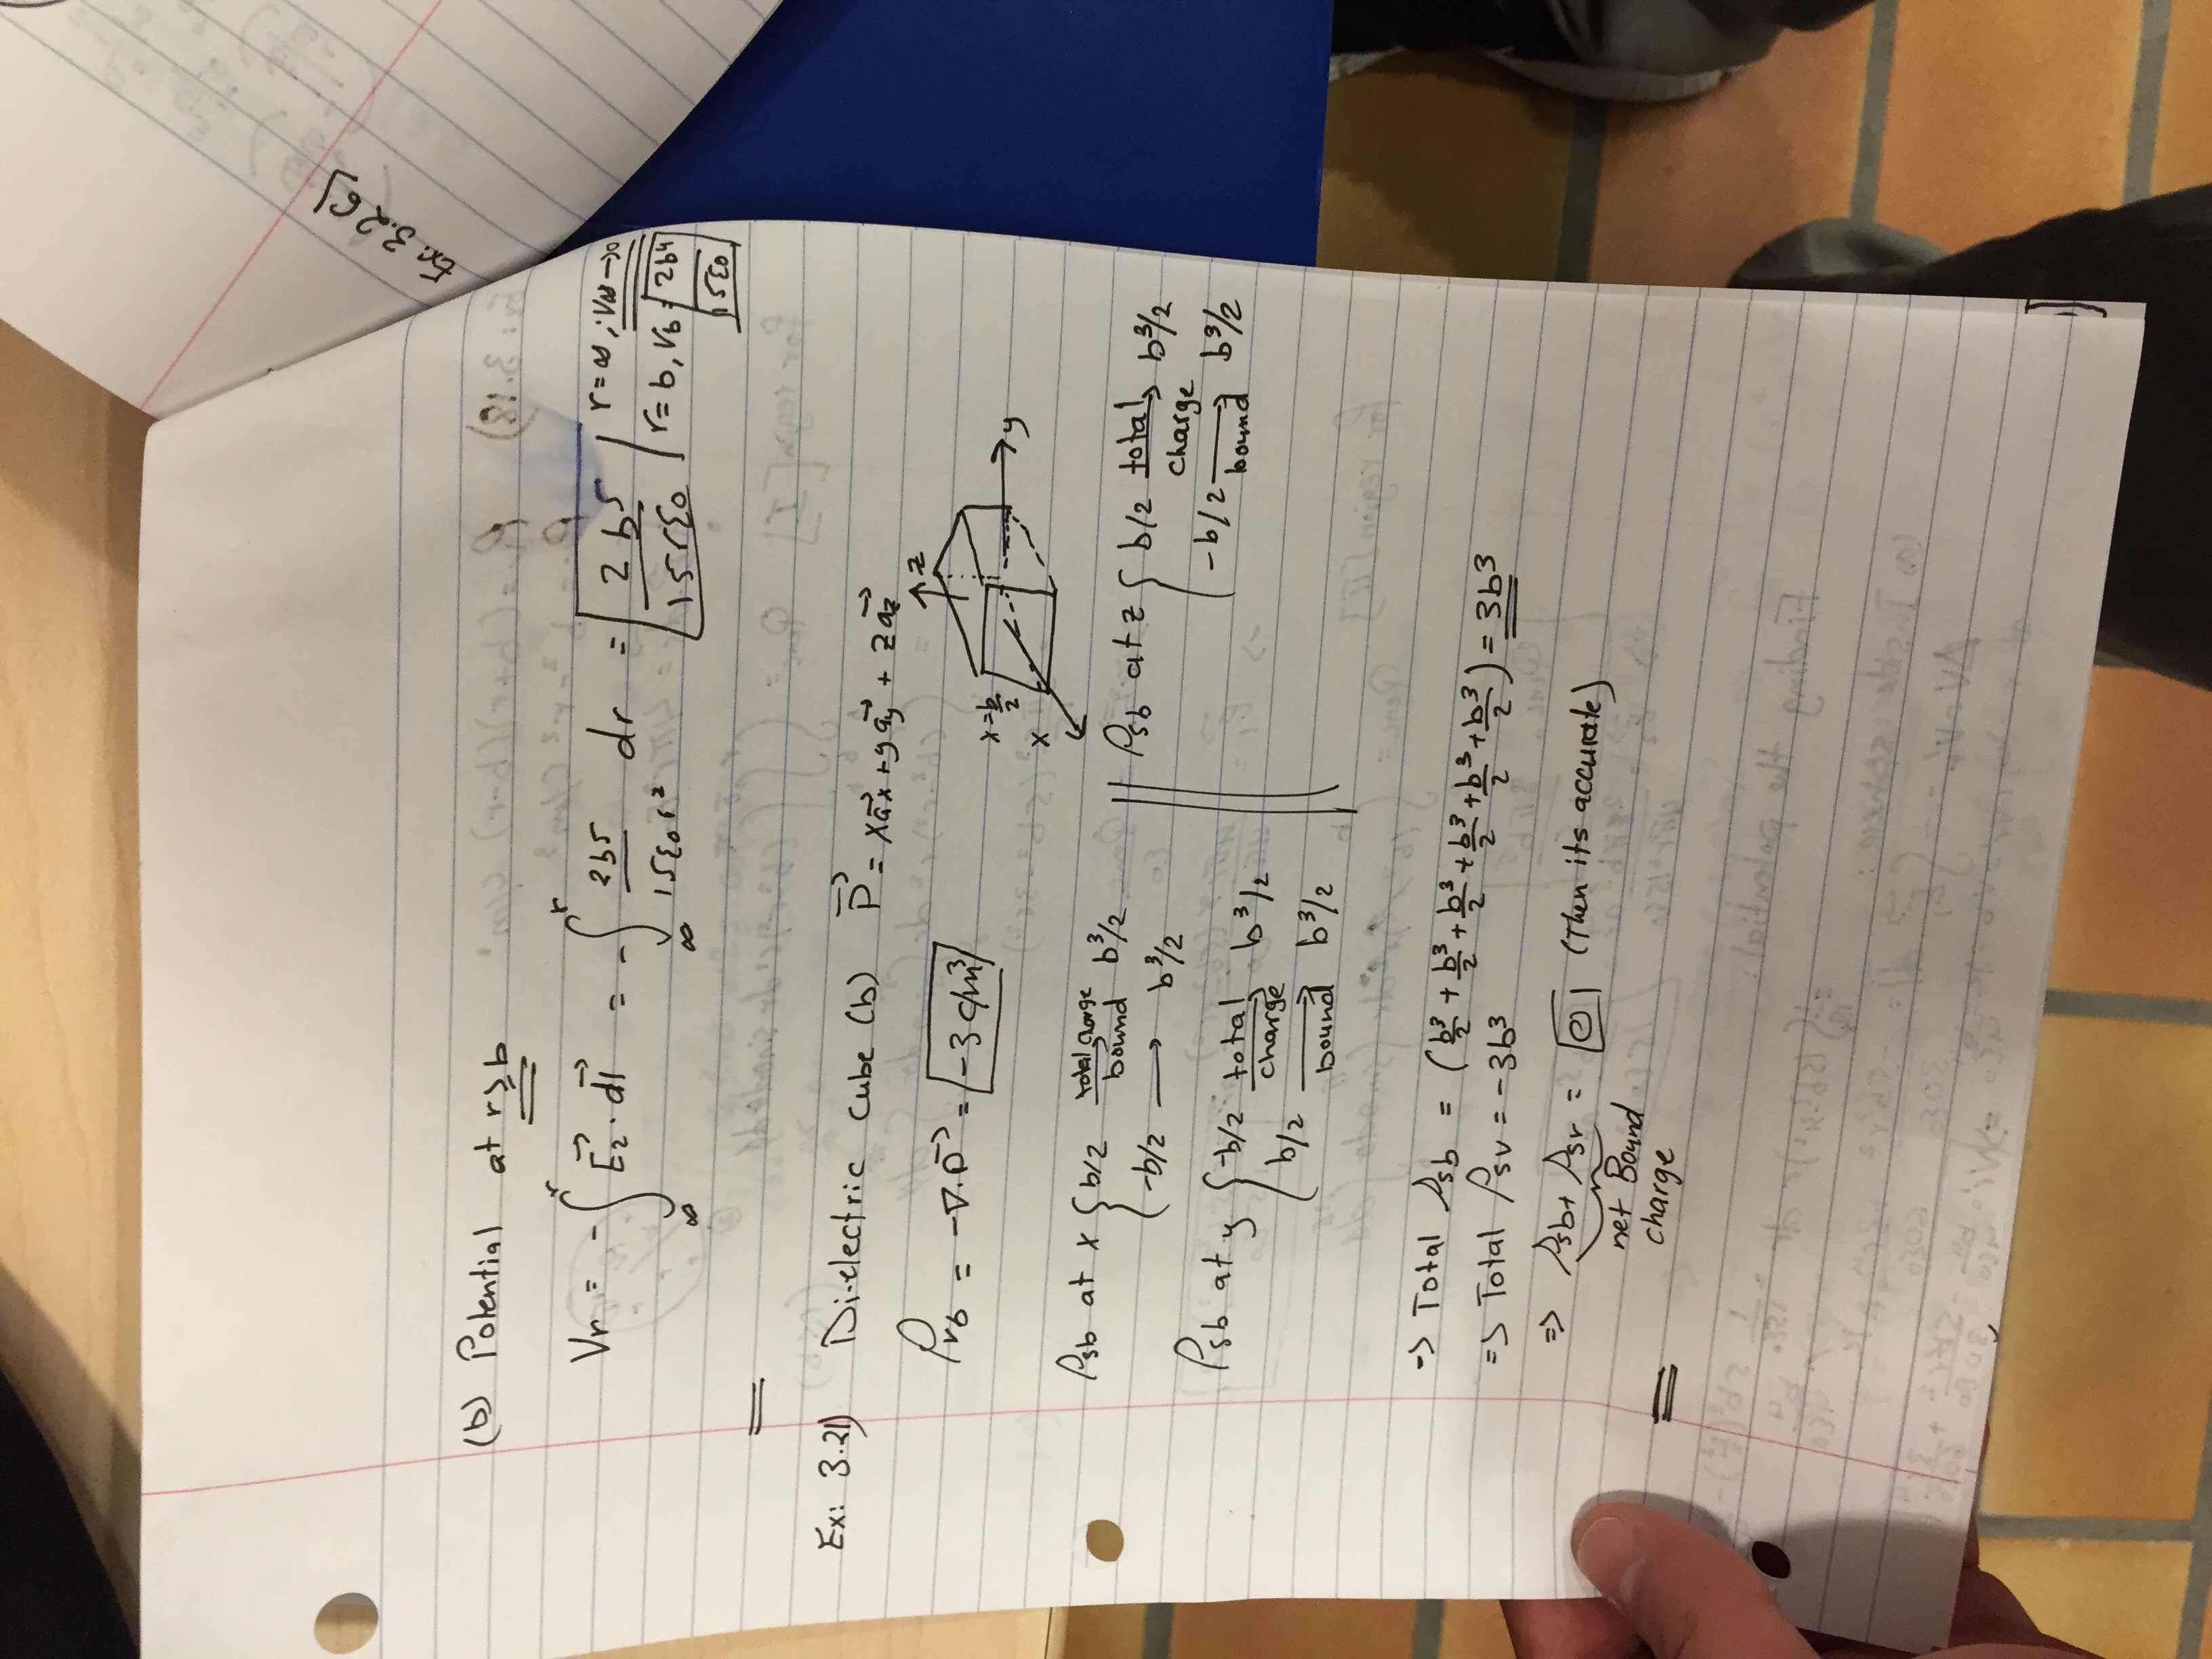 (b) Potential at r≥b
Vr = - ∫∞^r E₂⃗ · dl⃗ = - ∫∞^r 2b⁵/15ε₀r² dr = 2b⁵/15rε₀ | r=∞, V∞→0
r=b, Vb = 2b⁴/15ε₀
Ex: 3.21) Di-electric cube (b) P⃗ = xa⃗x + ya⃗y + za⃗z
ρvb = -∇·P⃗ = -3 c/m³
z
y
x=b/2
x
ρsb at x { b/2 total charge bound b³/2
-b/2 → b³/2
ρsb at y { -b/2 total charge b³/2
b/2 bound b³/2
ρsb at z { b/2 total charge → b³/2
-b/2 bound → b³/2
→ Total ρsb = (b³/2 + b³/2 + b³/2 + b³/2 + b³/2 + b³/2) = 3b³
=> Total ρsv = -3b³
=> ρsb + ρsv = 0 (Then its accurate)
net Bound
charge
Ex: 3.26)